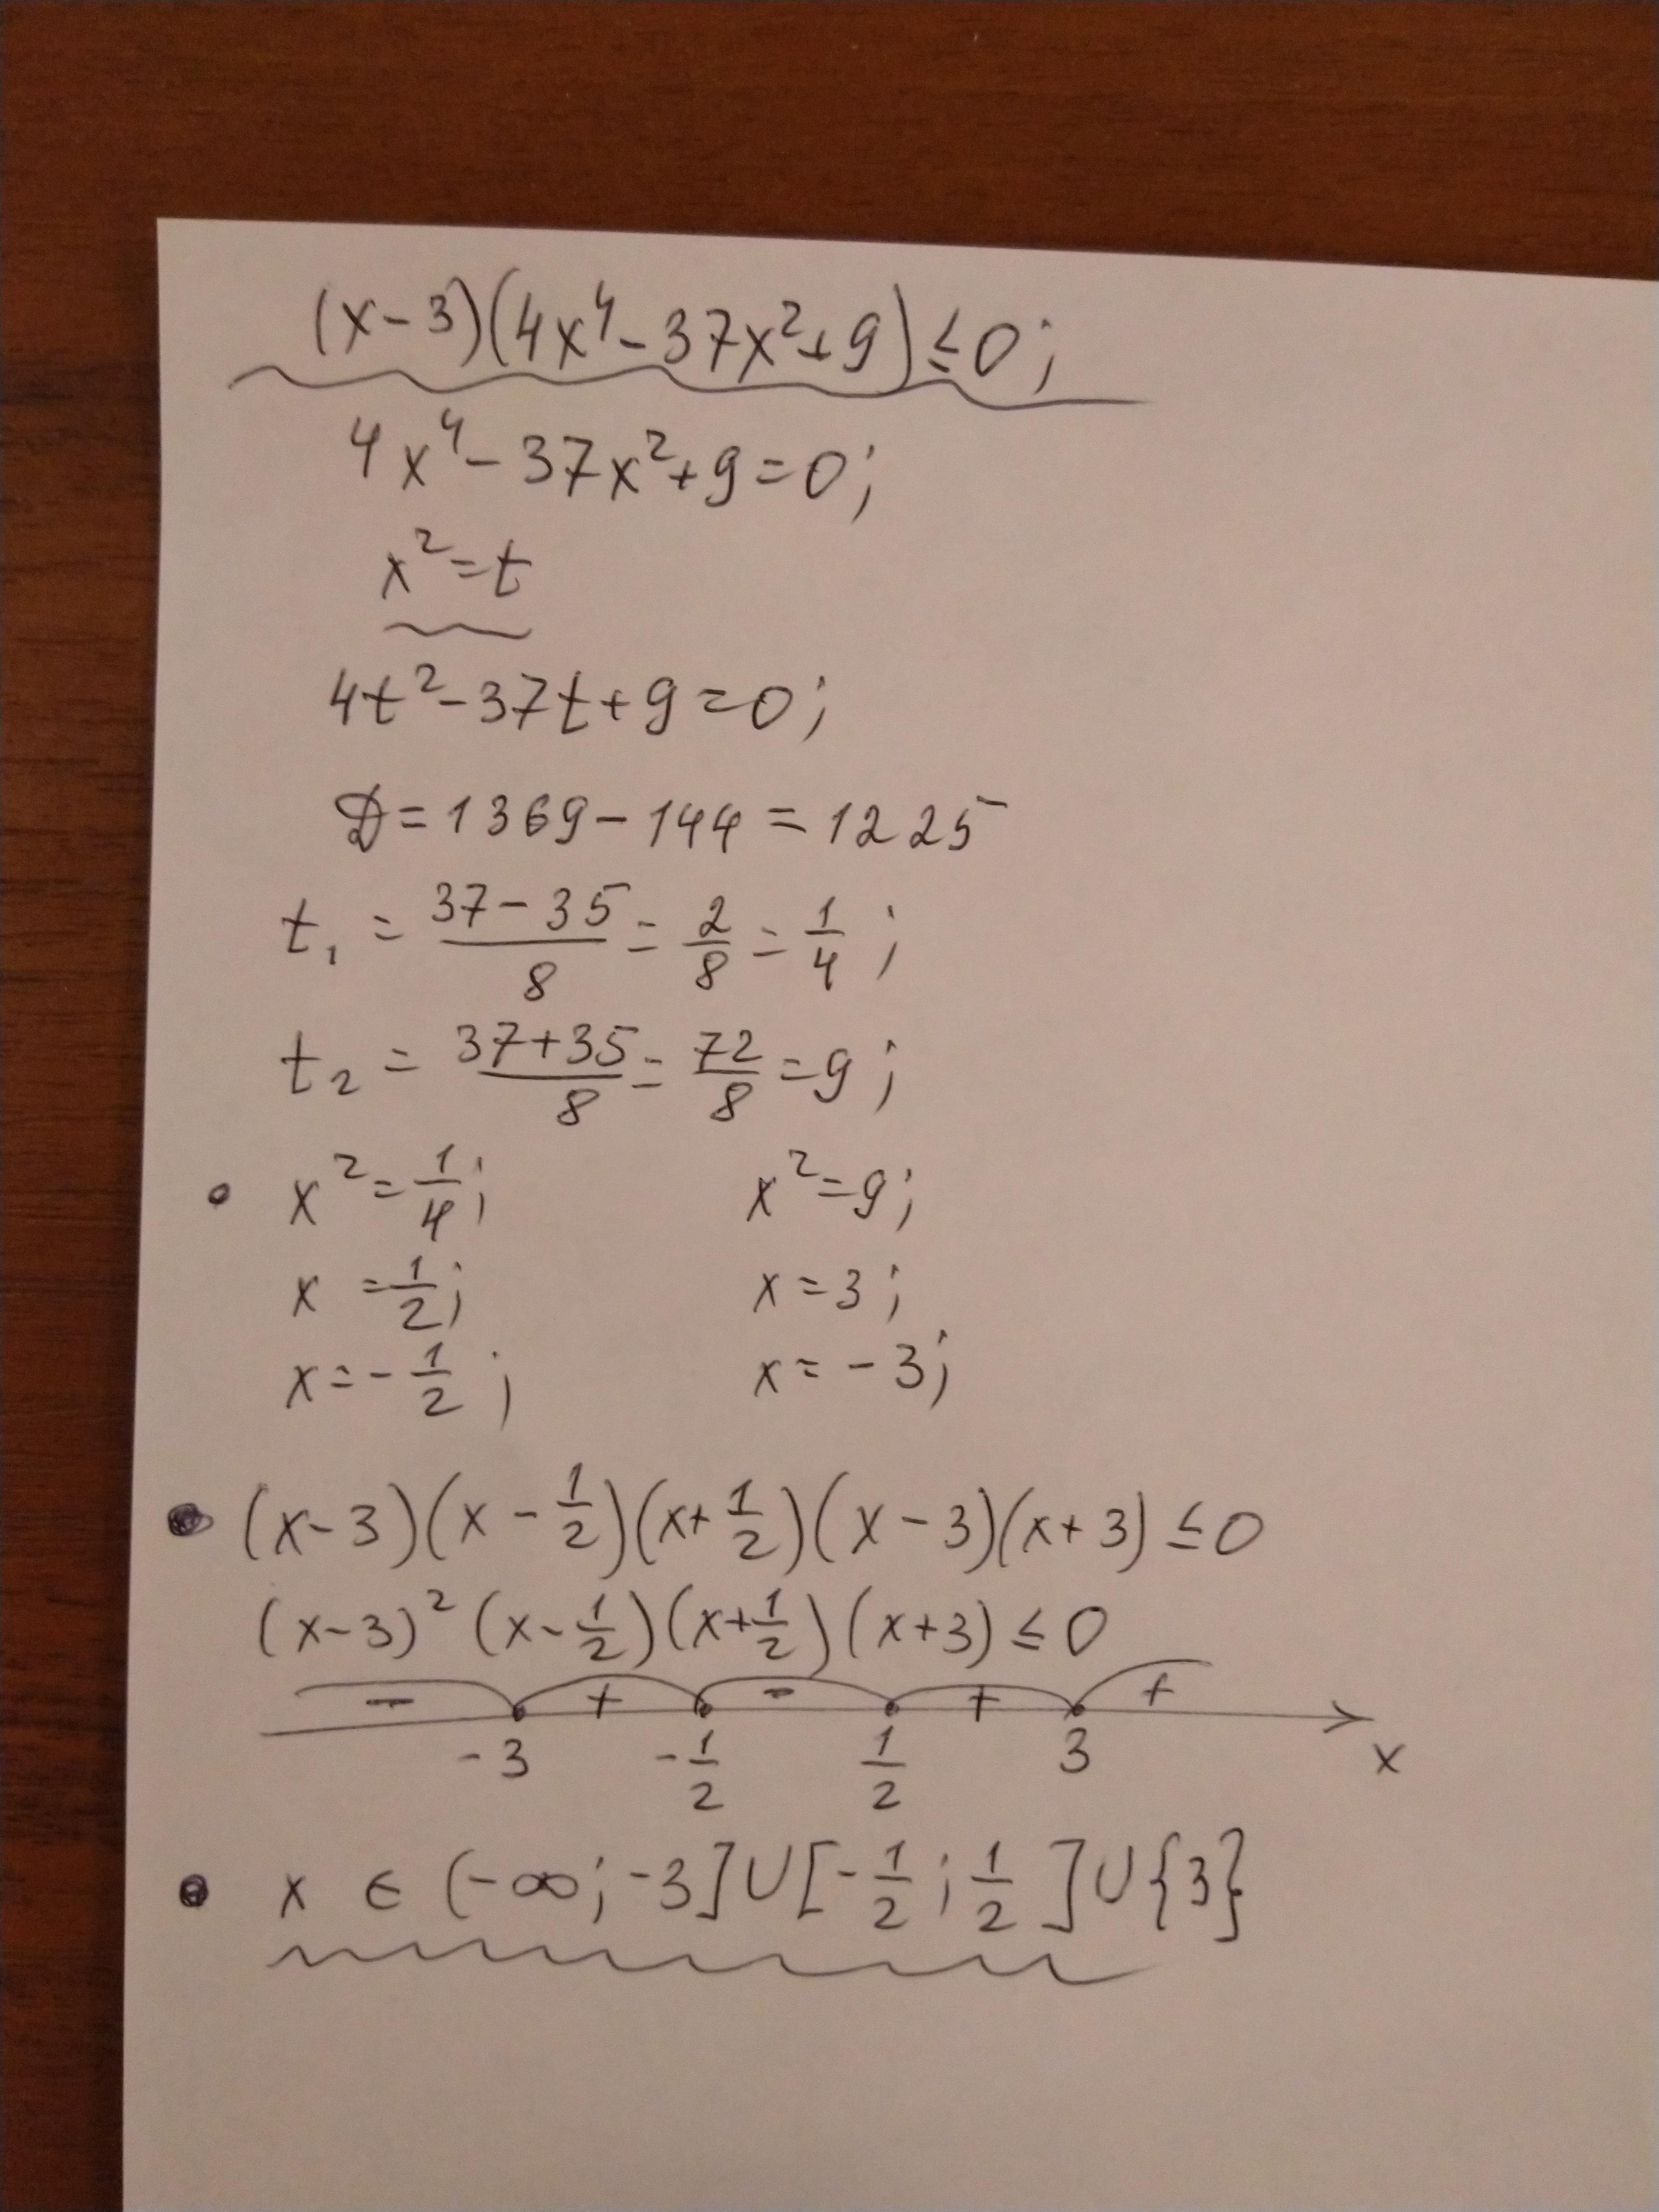 (x-3)(4x⁴-37x²+9)≤0;
4x⁴-37x²+9=0;
x²=t
4t²-37t+9=0;
D=1369-144=1225
t₁ = (37-35)/8 = 2/8 = 1/4;
t₂ = (37+35)/8 = 72/8 = 9;
• x²=1/4; x²=9;
x=1/2; x=3;
x=-1/2; x=-3;
• (x-3)(x-1/2)(x+1/2)(x-3)(x+3)≤0
(x-3)²(x-1/2)(x+1/2)(x+3)≤0
- + - + +
-3 -1/2 1/2 3 x
• x ∈ (-∞;-3]∪[-1/2;1/2]∪{3}